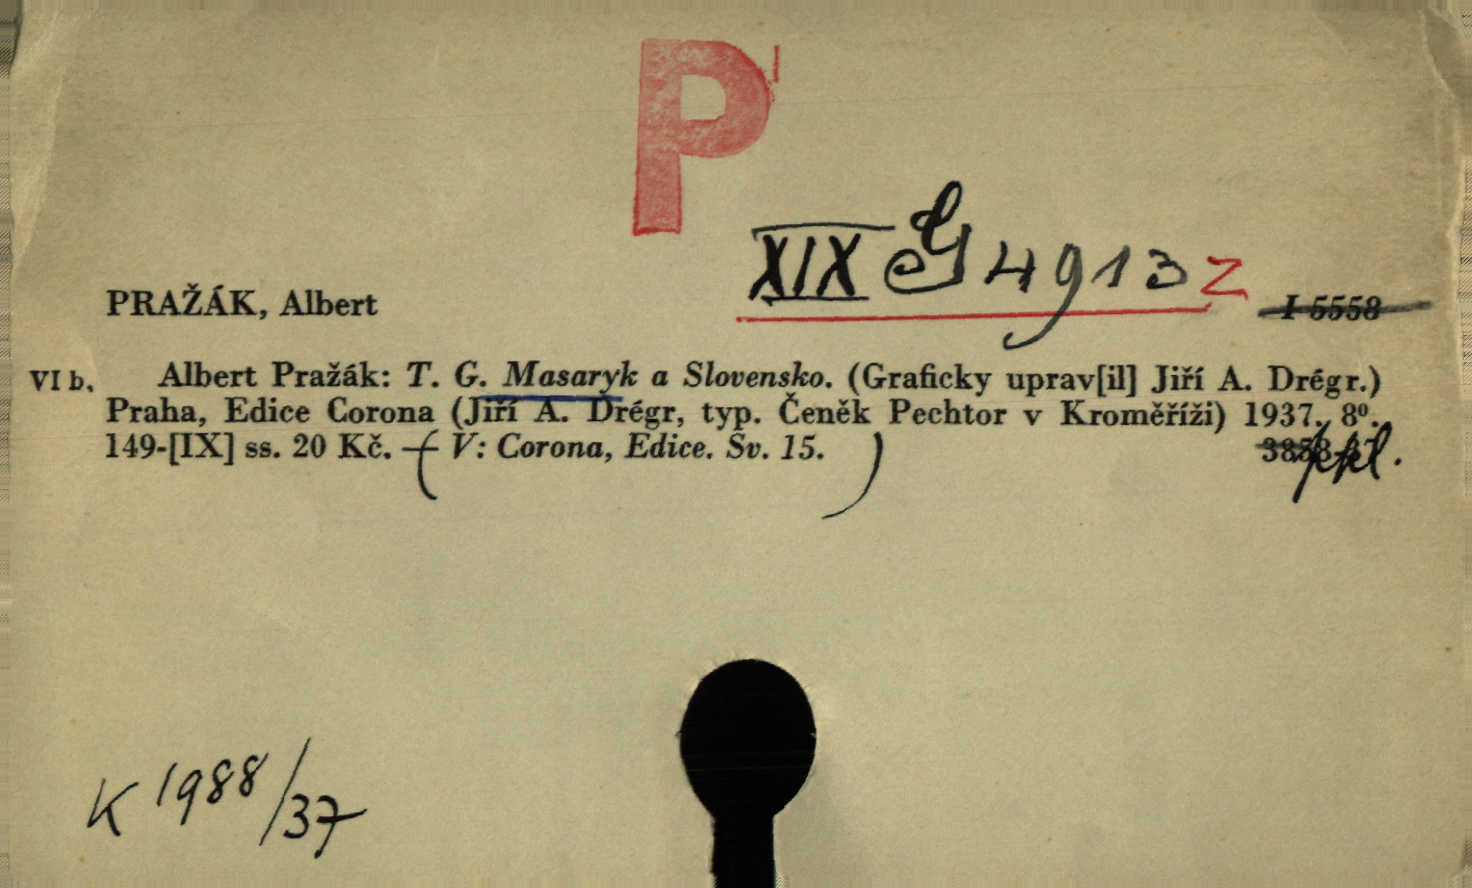 P
XIX G 4913 Z
PRAŽÁK, Albert I 5558
VI b. Albert Pražák: T. G. Masaryk a Slovensko. (Graficky uprav[il] Jiří A. Drégr.)
Praha, Edice Corona (Jiří A. Drégr, typ. Čeněk Pechtor v Kroměříži) 1937. 8º.
149-[IX] ss. 20 Kč. — (V: Corona, Edice. Sv. 15.)
K 1988/37